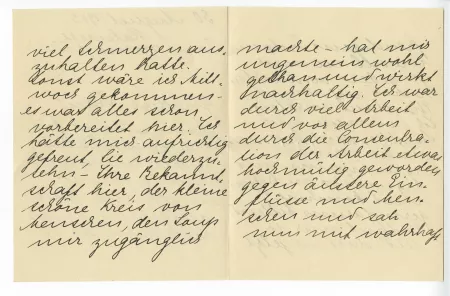 viel, Schmerzen aus-
zuhalten hatte.
Sonst wäre ich Mitt-
woch gekommen –
es war alles schon
vorbereitet hier. Ich
hätte mich aufrichtig
gefreut, Sie wiederzu-
sehn – Ihre Bekannt-
schaft hier, der kleine
schöne Kreis von
Menschen, den Sie uns
mir zugänglich
machte – hat mir
ungemein wohl
gethan und wirkt
nachhaltig. Ich war
durch viel Arbeit
und vor allem
durch die Concentra-
tion der Arbeit etwas
hochmütig geworden
gegen äußere Ein-
flüsse und Men-
schen und sah
nun mit wahrhaft